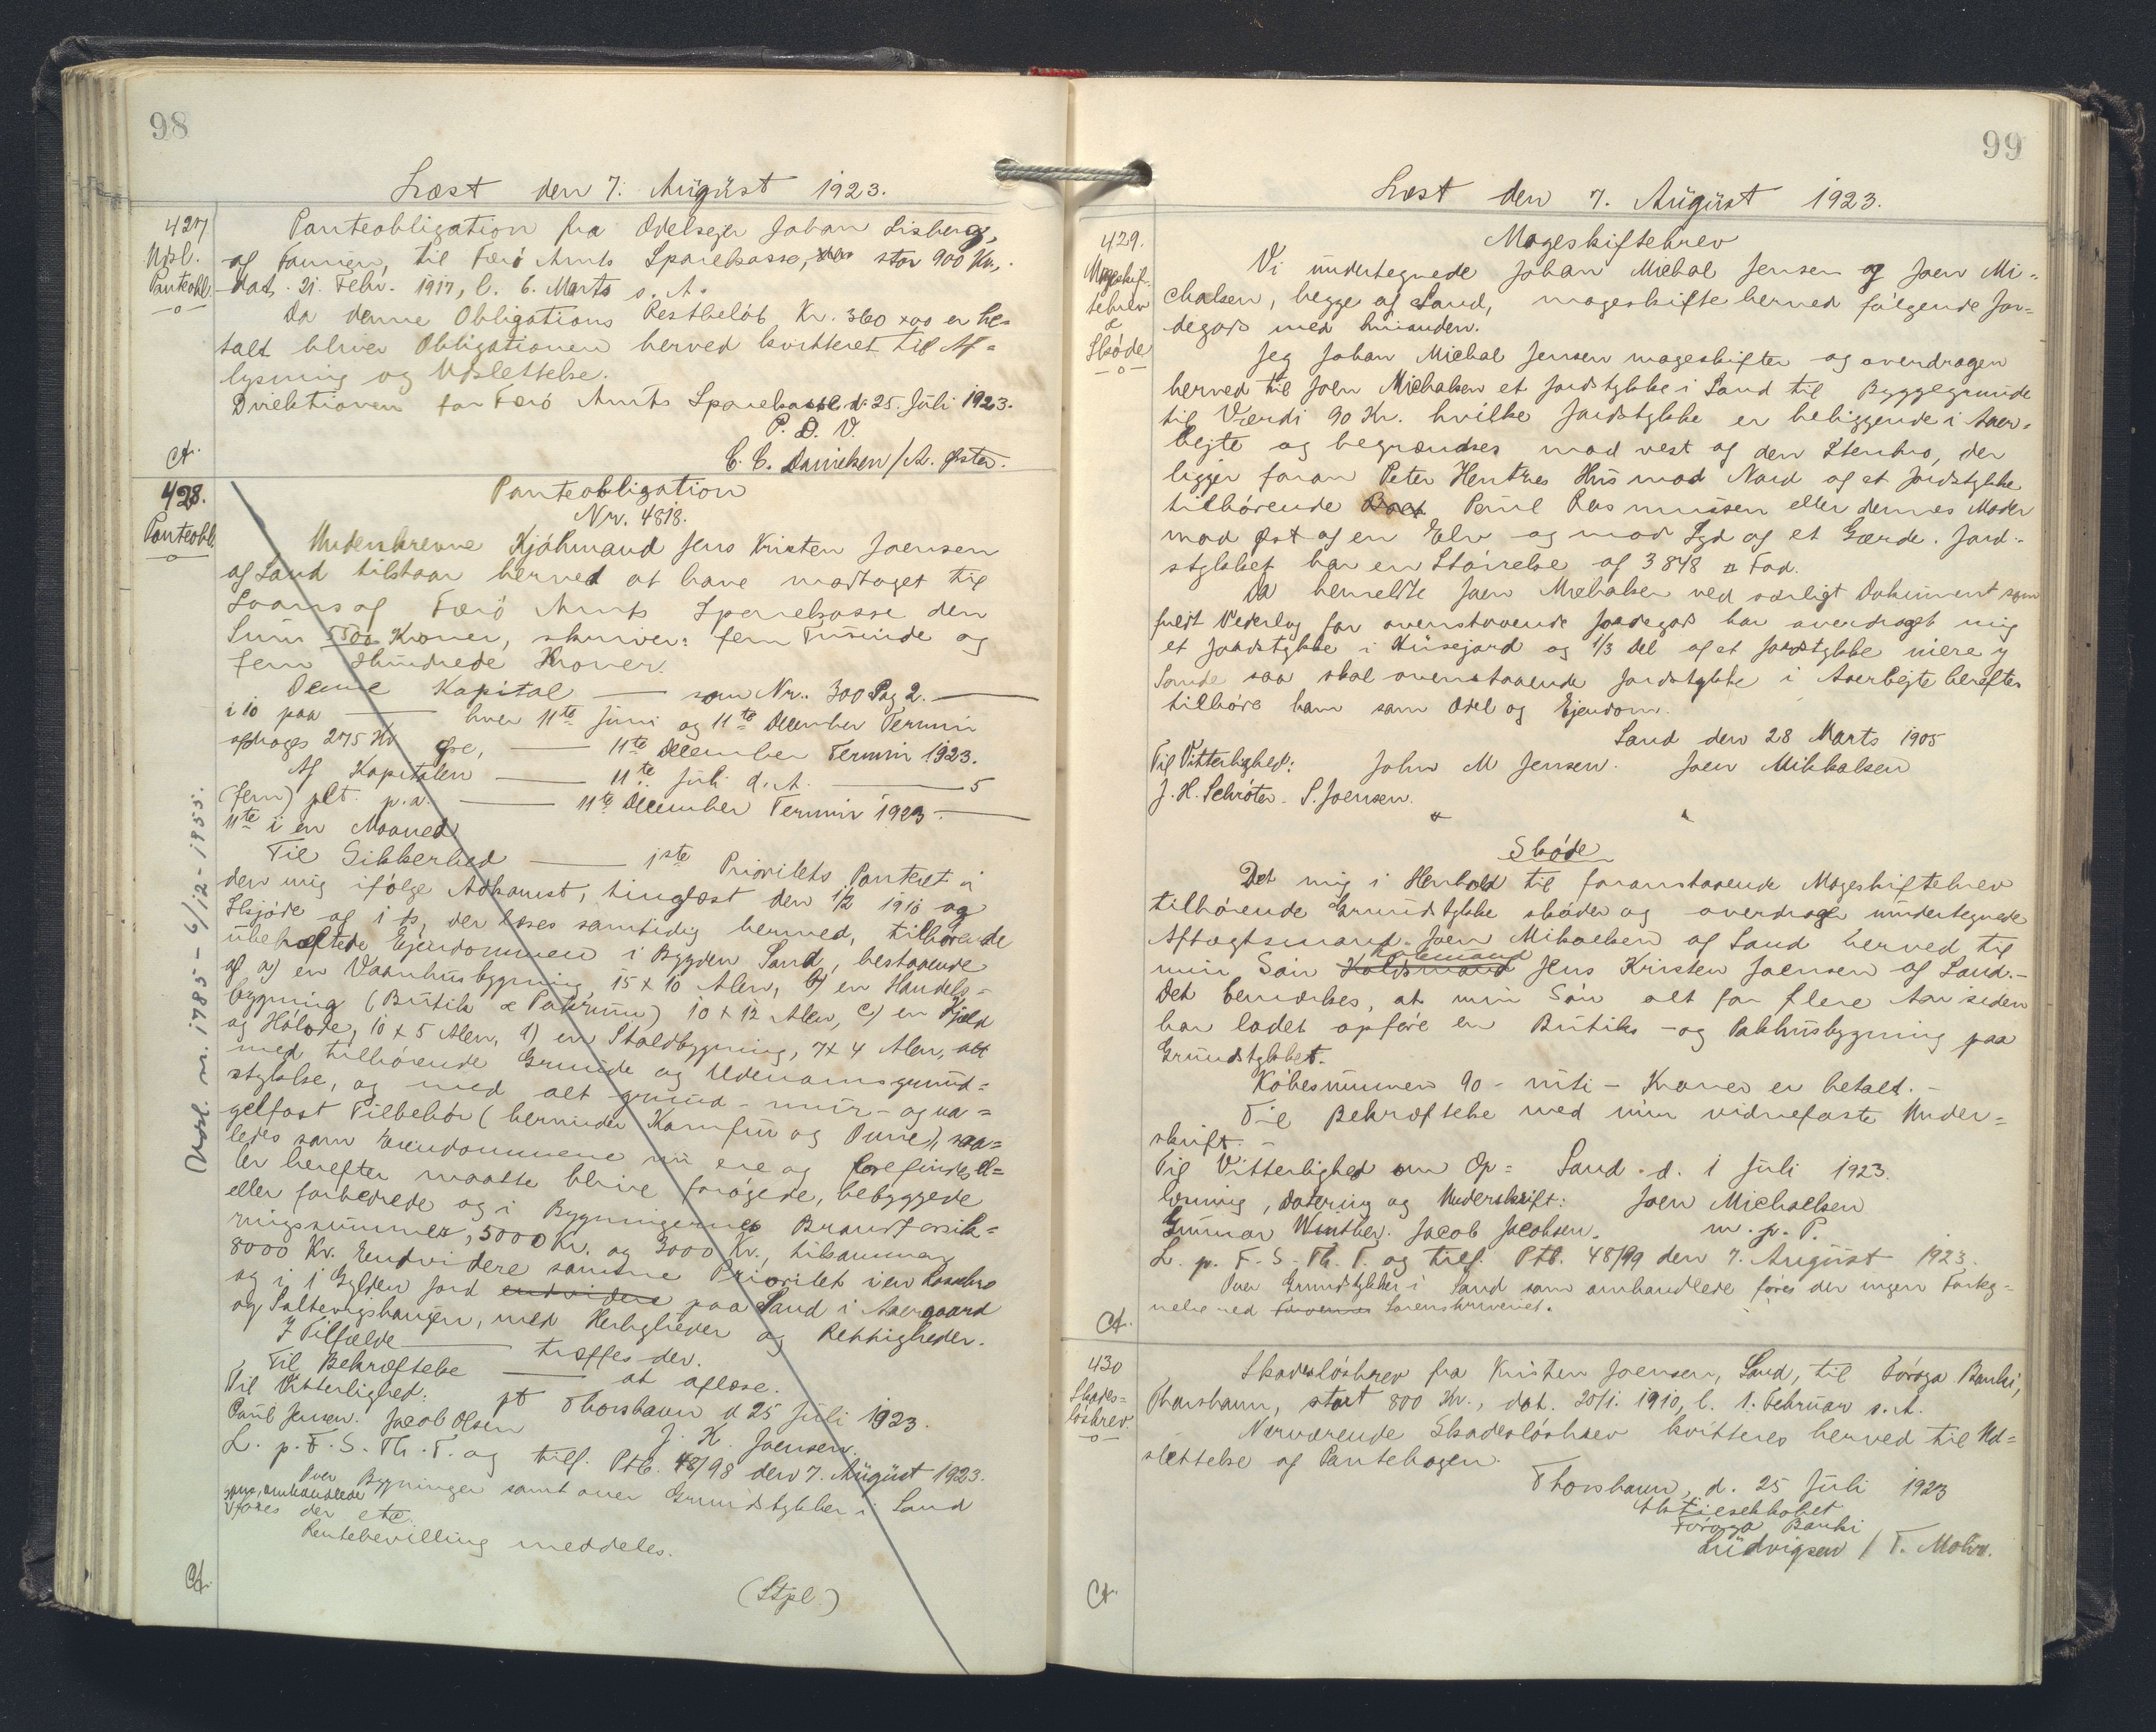 98
Læst den 7. August 1923.
427
Udsl.
Panteobl.
Panteobligation fra Odelsejer Johan Lisberg,
af Famien, til Færö Amts Sparekasse, stor 900 Kr.,
dat. 21. Febr. 1917, l. 6. Marts s. A.
Da denne Obligations Restbelöb Kr. 360 xoo er be-
talt bliver Obligationen herved kvitteret til Af-
lysning og Udslettelse.
Direktionen for Færö Amts Sparekasse d. 25. Juli 1923.
P. D. V.
C. C. Danielsen / A. Öster.
Ct.
428.
Panteobl.
Panteobligation
Nr. 4818.
Underskrevne Kjøbmand Jens Kristen Joensen
af Sand tilstaar herved at have modtaget til
Laans af Færö Amts Sparekasse den
Sum 5500 Kroner, skriver: fem Tusinde og
fem Hundrede Kroner.
Denne Kapital — som Nr. 300 Pag 2. —
i 10 paa — hver 11te Juni og 11te December Termin
afdrages 275 Kr Øre, — 11te December Termin 1923.
Af Kapitalen — 11te Juli d. A. — 5
(fem) pCt. p.a. — 11te December Termin 1923 —
11te i en Maaned
Til Sikkerhed — 1ste Prioritets Panteret i
den mig ifölge Adkomst, tinglæst den 1/2 1910 og
Skjöde af i ds, der læses samtidig hermed, tilhörende
ubehæftede Ejendommen i Bygden Sand, bestaaende
af a) en Vaanhusbygning 15 x 10 Alen, b) en Handels-
bygning (Butik & Pakrum) 10 x 12 Alen, c) en Hjæld
og Hölade, 10 x 5 Alen, d) en Staldbygning, 7 x 4 Alen, alt
med tilhörende Grunde og Udenomsgrund-
stykke, og med alt grund- mur- og na-
gelfast Tilbehör (herunder Komfur og Ovne), saa-
ledes som Ejendommene nu ere og forefindes el-
ler herefter maatte blive forögede, bebyggede
eller forbedrede og i Bygningernes Brandforsik-
ringssummer, 5000 Kr. og 3000 Kr., tilsammen
8000 Kr. Endvidere samme Prioritet i en
og i 1 Gylden Jord endvidere paa Sand i Aaergaard
og Saltevigshaugen, med Herligheder og Rettigheder.
I Tilfælde — træffes der.
Til Bekræftelse — at aflæse.
Til Vitterlighed: pt Thorshavn d 25 Juli 1923.
Poul Jensen. Jacob Olsen J. K. Joensen.
L. p. F. S. Th. T. og tilf. Ptb. 48/98 den 7. August 1923.
Over Bygninger samt over Grundstykker i Sand
som, omhandlede
föres der etc.
Rentebevilling meddeles.
(Stpl.)
Ct.
Udsl. nr. 1785 - 6/12 - 1955.
99
Læst den 7. August 1923.
429.
Mageskif-
tebrev
&
Sköde
Mageskiftebrev
Vi undertegnede Johan Michal Jensen og Joen Mi-
chalsen, begge af Sand, mageskifte herved fölgende Jor-
degods med hinanden.
Jeg Johan Michal Jensen mageskifter og overdrager
herved til Joen Michalsen et Jordstykke i Sand til Byggegrunde
til Værdi 90 Kr. hvilke Jordstykke er beliggende i Aaer-
bejte og begrændses mod vest af den Stenbro, der
ligger foran Peter Hentzes Hus mod Nord af et Jordstykke
tilhörende Poul Rasmussen eller dennes Moder
mod Øst af en Elv og mod Syd af et Gærde. Jord-
stykket har en Störrelse af 3848 □ Fod.
Da bemeldte Joen Michalsen ved særligt Dokument som
fuldt Vederlag for ovenstaaende Jordegods har overdraget mig
et Jordstykke i Husejord og 1/3 Del af et Jordstykke niere y
Sande saa skal ovenstaaende Jordstykke i Aaerbejte herefter
tilhöre ham som Odel og Ejendom.
Sand den 28 Marts 1905
Til Vitterlighed: John M Jensen. Joen Mikkalsen
J. H. Schröter. S. Joensen.
&
Sköde
Det mig i Henhold til foranstaaende Mageskiftebrev
tilhörende Grundstykke sköder og overdrager undertegnede
Aftægtsmand Joen Mikaelsen af Sand herved til
Købmand
min Sön Jens Kristen Joensen af Sand.-
Det bemærkes, at min Sön alt for flere Aar siden
har ladet opföre en Butiks- og Pakhusbygning paa
Grundstykket.
Köbesummen 90 - niti - Kroner er betalt.-
Til Bekræftelse med min vidnefaste Under-
skrift.-
Til Vitterlighed om Op- Sand. d. 1 Juli 1923.
læsning, datering og Underskrift: Joen Michaelsen
Gunnar Winther. Jacob Jacobsen. m. p. P.
L. p. F. S. Th. T. og tilf. Ptb. 48/99 den 7. August 1923.
Over Grundstykker i Sand som omhandlede föres der ingen Forteg-
nelse ved Sorenskriveriet.
Ct.
430
Skades-
lösbrev
Skadeslösbrev fra Kristen Joensen, Sand, til Föroya Banki,
Thorshavn, stort 800 Kr., dat. 20/1. 1910, l. 1. Februar s. A.
Nærværende Skadeslösbrev kvitteres herved til Ud-
slettelse af Pantebogen.
Thorshavn, d. 25 Juli 1923
Aktieselskabet
Föroya Banki
Ludvigsen / T. Mohr.
Ct.